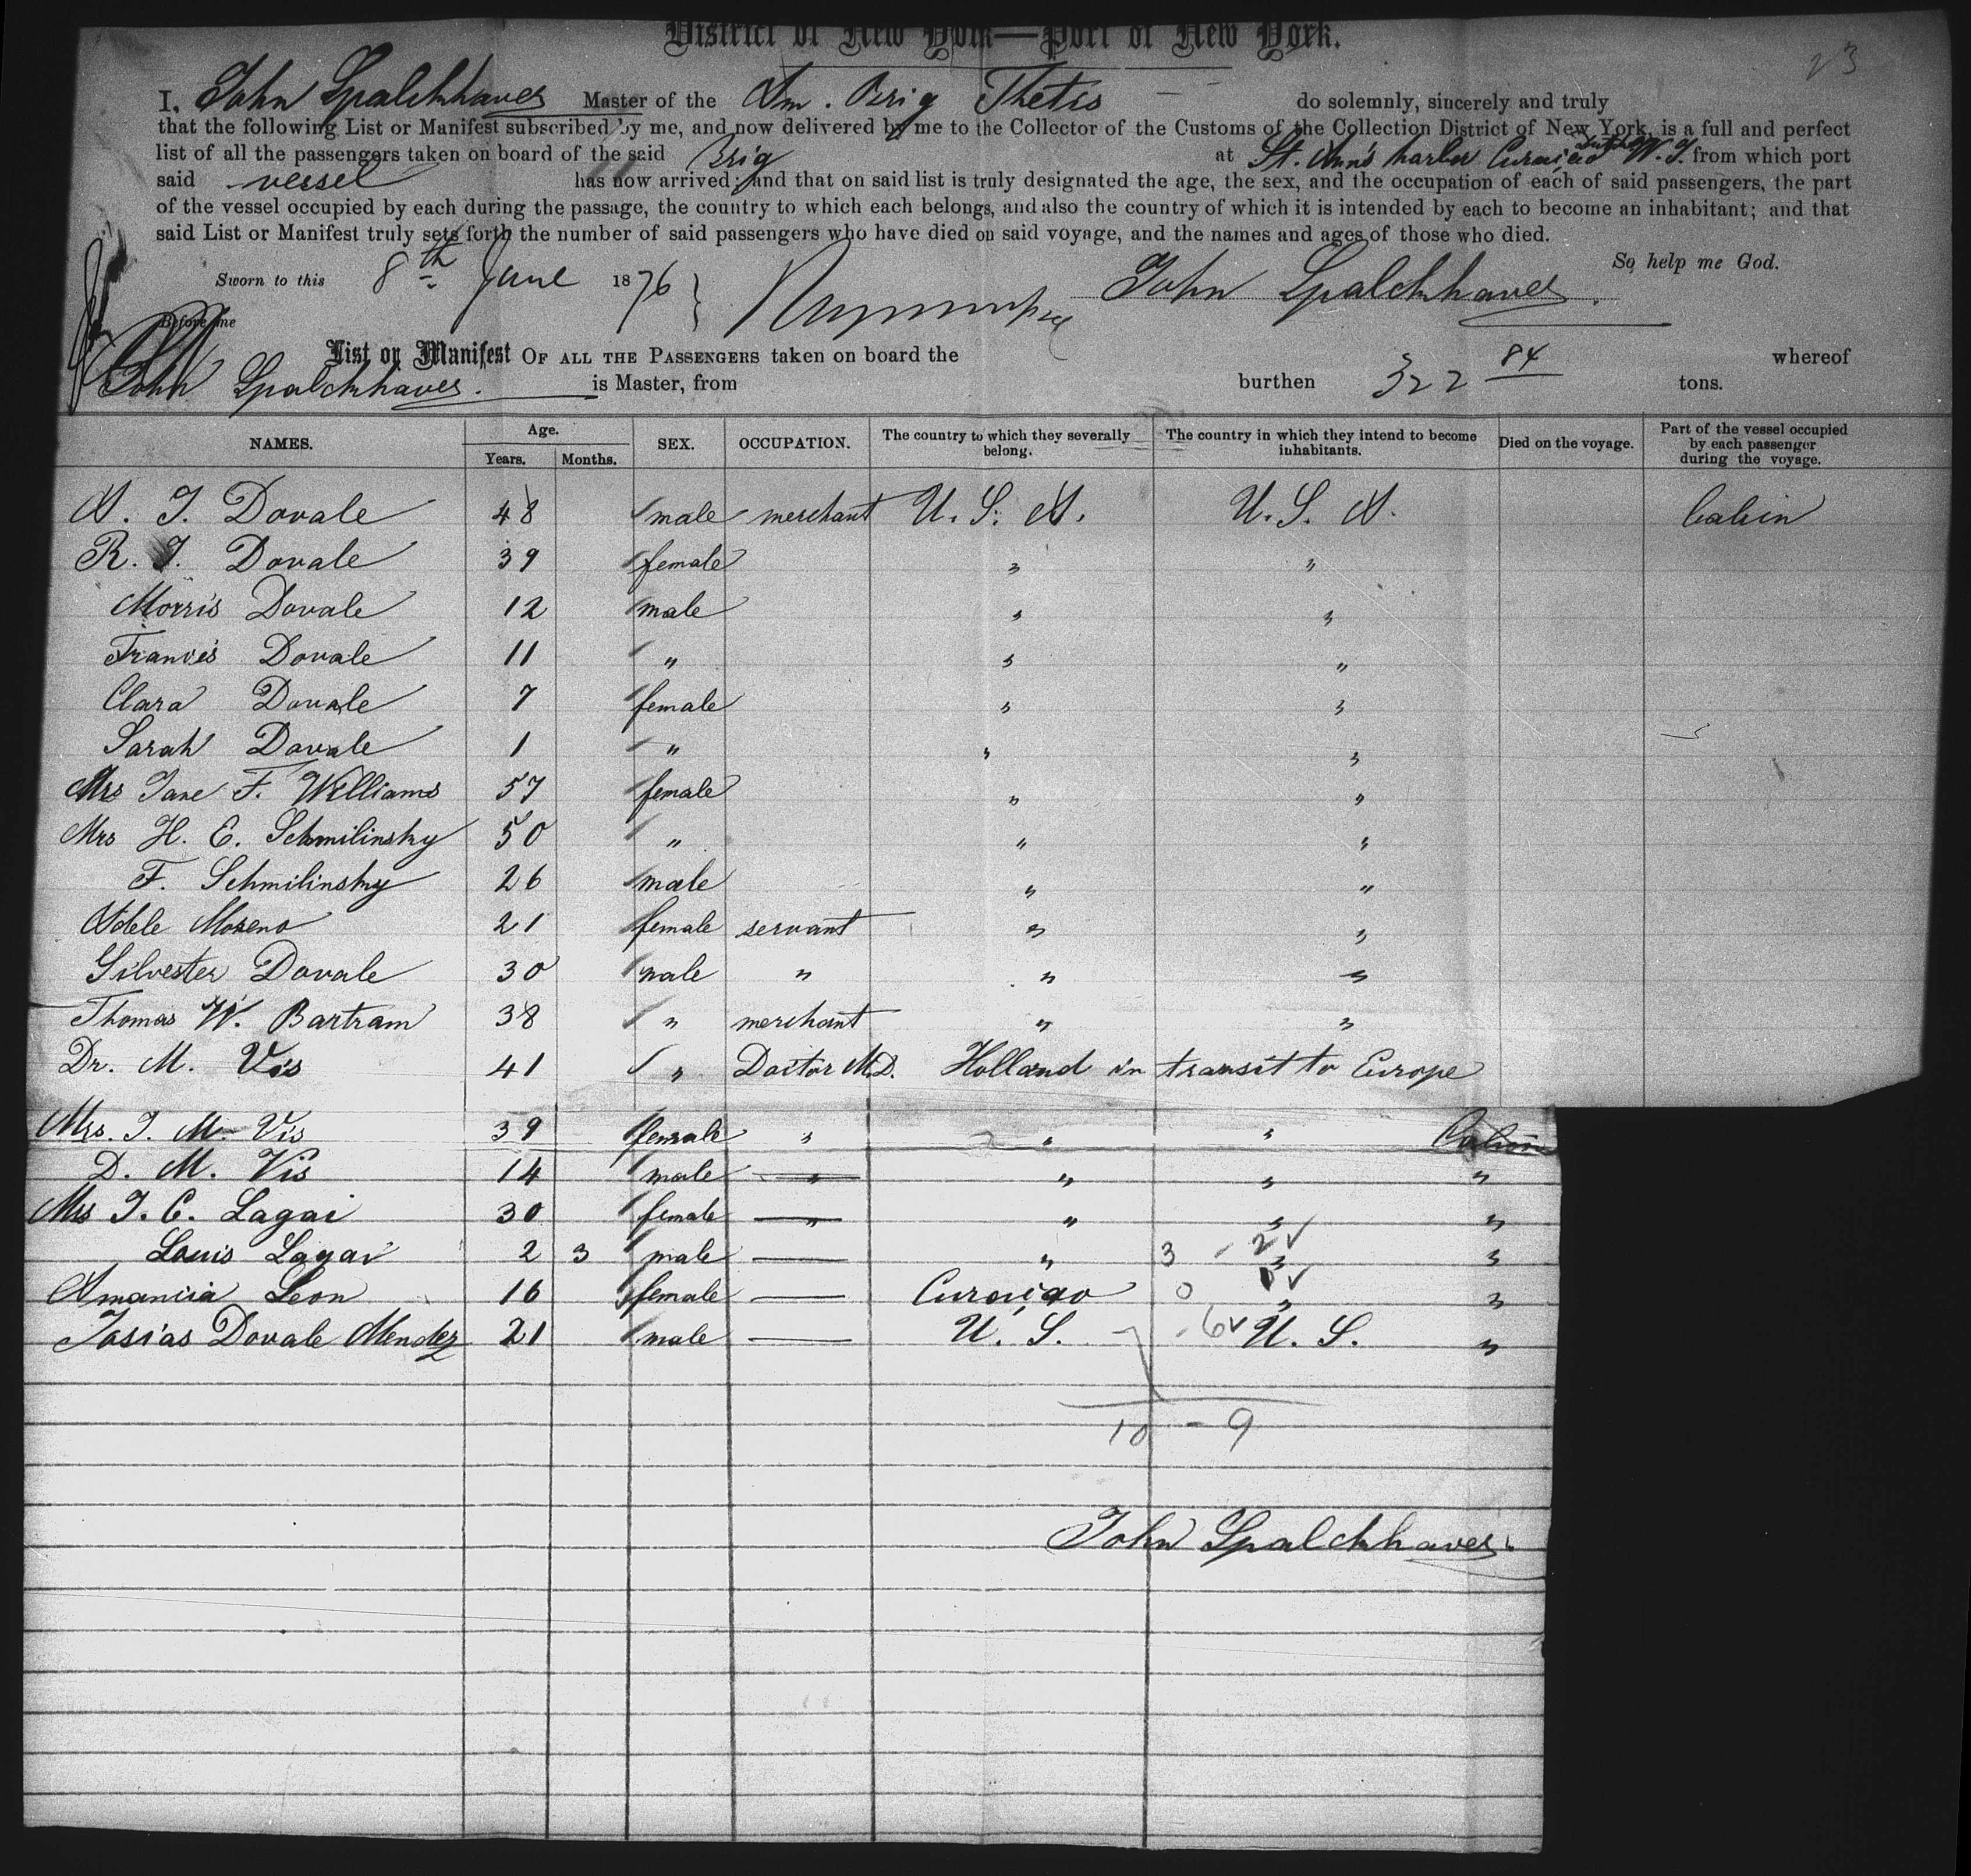 District of New York—Port of New York.
23
I, John Spalckhaver Master of the Am. Brig Thetis do solemnly, sincerely and truly
that the following List or Manifest subscribed by me, and now delivered by me to the Collector of the Customs of the Collection District of New York, is a full and perfect
list of all the passengers taken on board of the said Brig at St. Ann's harbor Curaçao Dutch W. I. from which port
said vessel has now arrived; and that on said list is truly designated the age, the sex, and the occupation of each of said passengers, the part
of the vessel occupied by each during the passage, the country to which each belongs, and also the country of which it is intended by each to become an inhabitant; and that
said List or Manifest truly sets forth the number of said passengers who have died on said voyage, and the names and ages of those who died.
So help me God.
Sworn to this 8th June 1876 } John Spalckhaver.
Before me
List or Manifest OF ALL THE PASSENGERS taken on board the whereof
John Spalckhaver. is Master, from burthen 322 84 tons.
NAMES. Age. Years. Months. SEX. OCCUPATION. The country to which they severally belong. The country in which they intend to become inhabitants. Died on the voyage. Part of the vessel occupied by each passenger during the voyage.
A. J. Dovale 48 male merchant U. S. A. U. S. A. Cabin
R. J. Dovale 39 female " "
Morris Dovale 12 male " "
Francis Dovale 11 " " "
Clara Dovale 7 female " "
Sarah Dovale 1 " " "
Mrs Jane F. Williams 57 female " "
Mrs H. E. Schmilinsky 50 " " "
F. Schmilinsky 26 male " "
Adele Moreno 21 female servant " "
Silvester Dovale 30 male " " "
Thomas W. Bartram 38 " merchant " "
Dr. M. Vis 41 " Doctor M.D. Holland in transit to Europe
Mrs. J. M. Vis 39 female " " " Cabin
D. M. Vis 14 male " " " "
Mrs J. C. Lagai 30 female " " " "
Louis Lagai 2 3 male — " 3 - 2 ✓ " "
Amancia Leon 16 female — Curaçao 0 1 ✓ " "
Josias Dovale Mendez 21 male — U. S. - 6 ✓ U. S. "
10 - 9
John Spalckhaver.